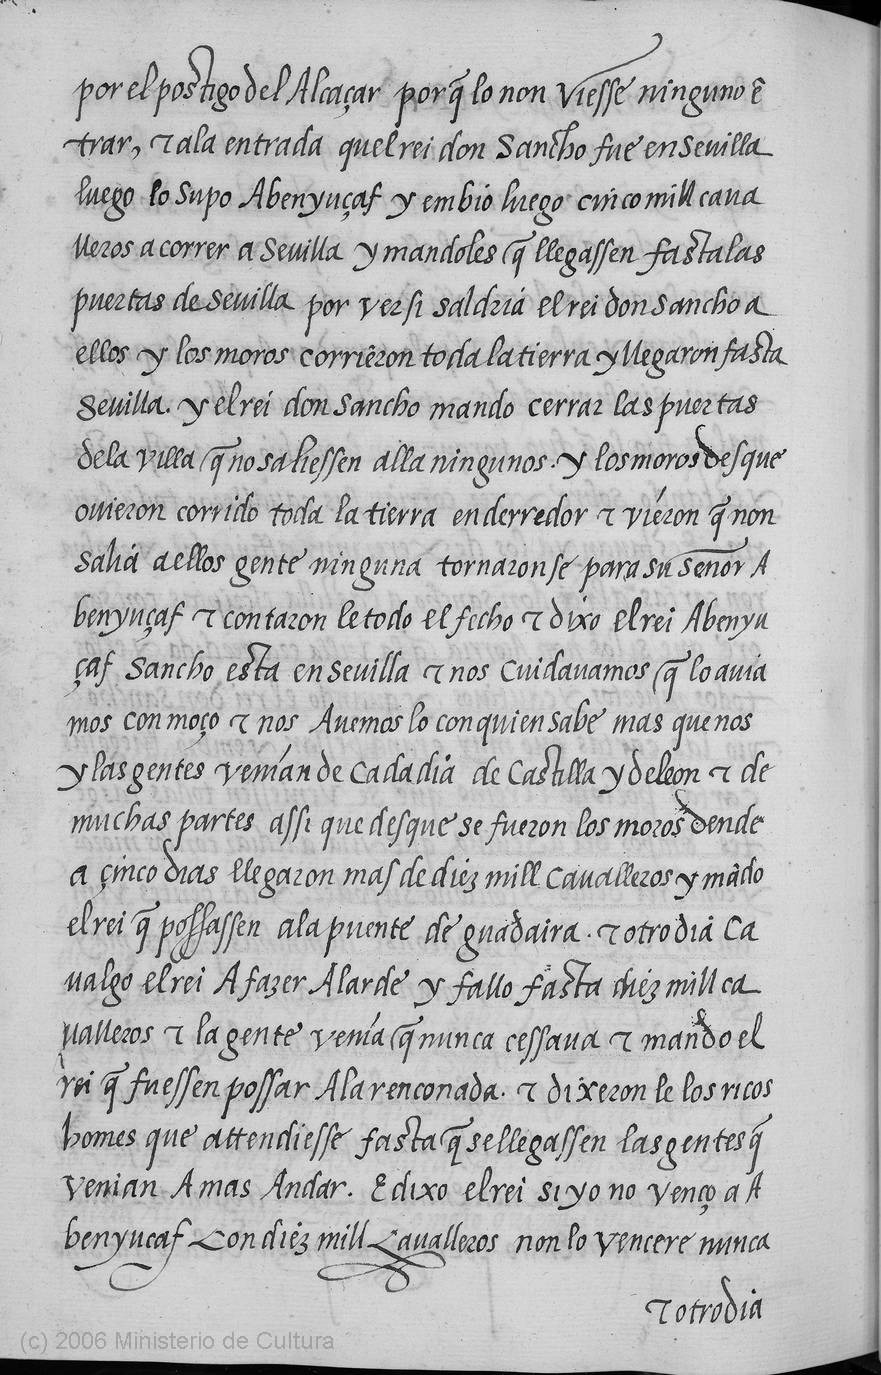 por el postigo del Alcaçar porq̃ lo non viesse ninguno ẽ
trar, τ ala entrada quel rei don Sancho fue en Sevilla
luego lo supo Abenyuçaf y embió luego cinco mill caua
lleros a correr a Seuilla y mandoles q̃ llegassen fasta las
puertas de Seuilla por ver si saldria el rei don Sancho a
ellos y los moros corriẽron toda la tierra y llegaron fasta
Seuilla. y el rei don Sancho mando cerrar las puertas
dela villa q̃ no saliessen alla ningunos. y los moros desque
ouieron corrido toda la tierra en derredor τ viéron q̃ non
salia a ellos gente ninguna tornaron se para su señor A
benyuçaf τ contaron le todo el fecho τ dixo el rei Abenyu
çaf Sancho esta en Seuilla τ nos cuidauamos q̃ lo auia
mos con moço τ nos Auemos lo con quien sabe mas que nos
y las gentes venían de cada dia de Castilla y de leon τ de
muchas partes assi que desque se fueron los moros dende
a çinco dias llegaron mas de diez mill caualleros y mãdo
el rei q̃ possassen ala puente de guadaira. τ otro dia ca
ualgo el rei A fazer Alarde y fallo fasta diez mill ca
ualleros τ la gente venía q̃ nunca cessaua τ mando el
rei q̃ fuessen possar A la renconada. τ dixeron le los ricos
homes que attendiesse fasta q̃ se llegassen las gentes q̃
venian A mas Andar. E dixo el rei si yo no venço a A
benyucaf Con diez mill Caualleros non lo vencere nunca
τ otro dia
(c) 2006 Ministerio de Cultura